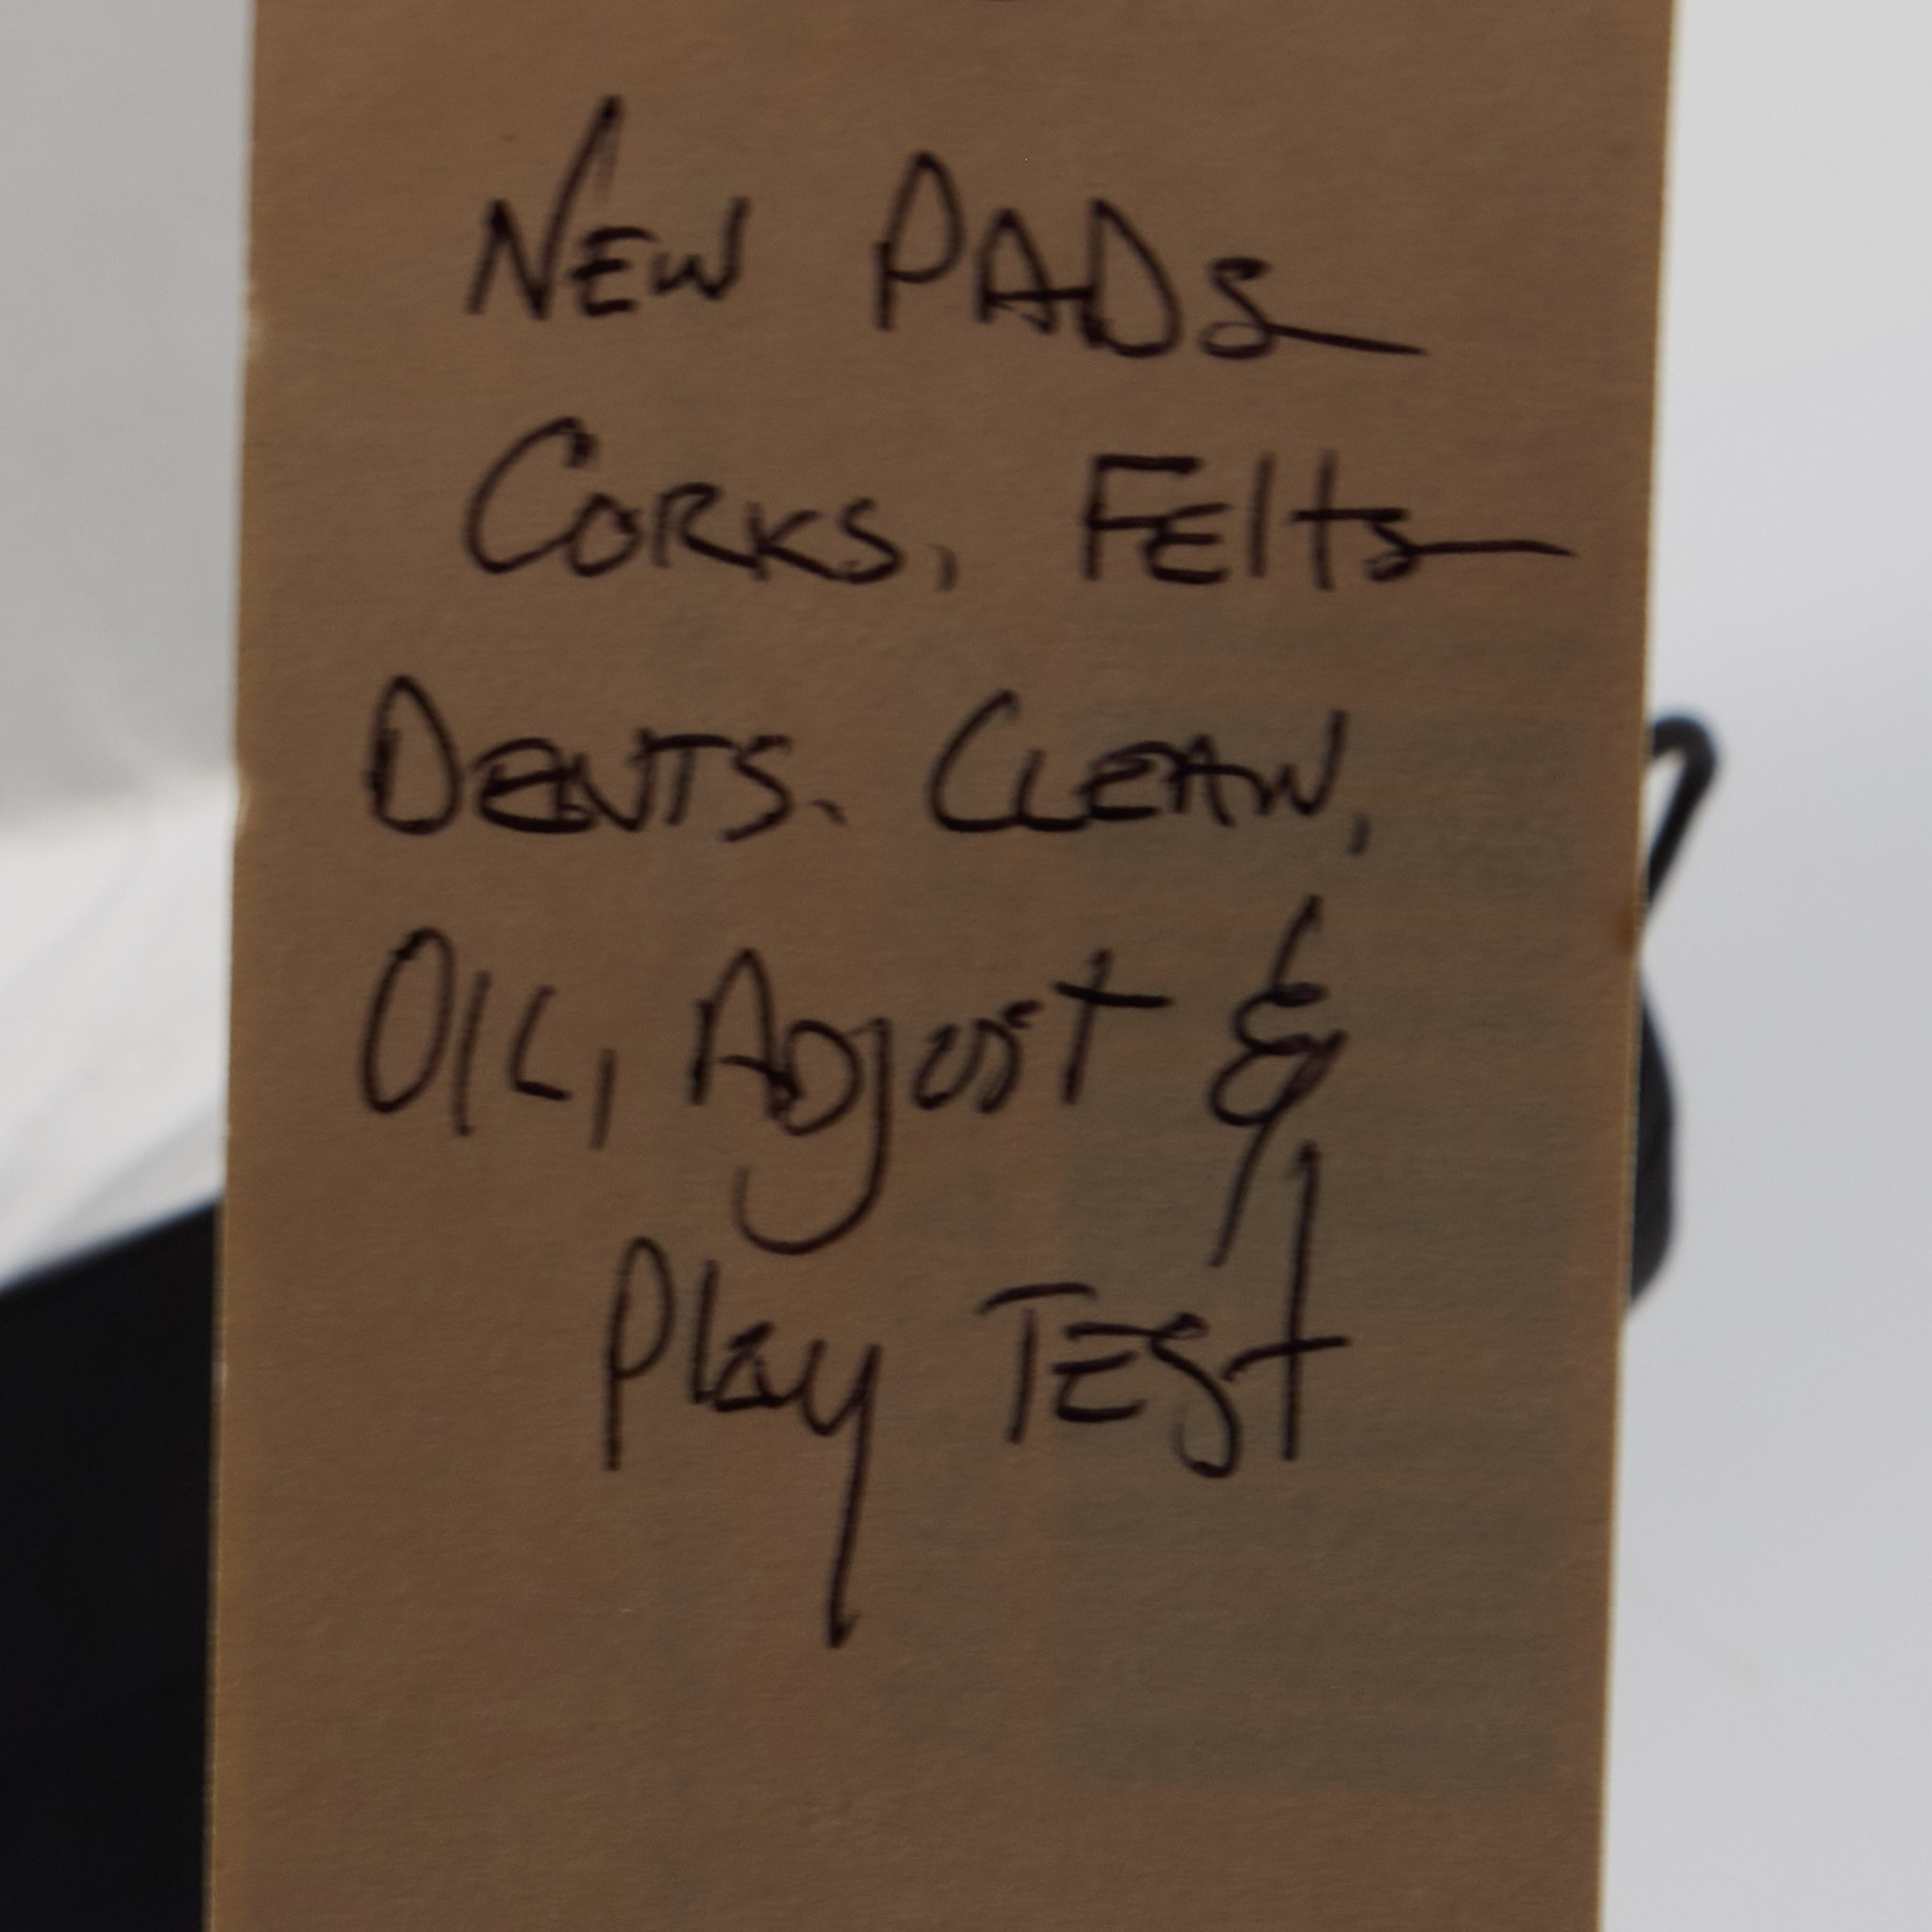 New PADs
Corks, Felts
Dents. Clean,
Oil, Adjust &
Play Test